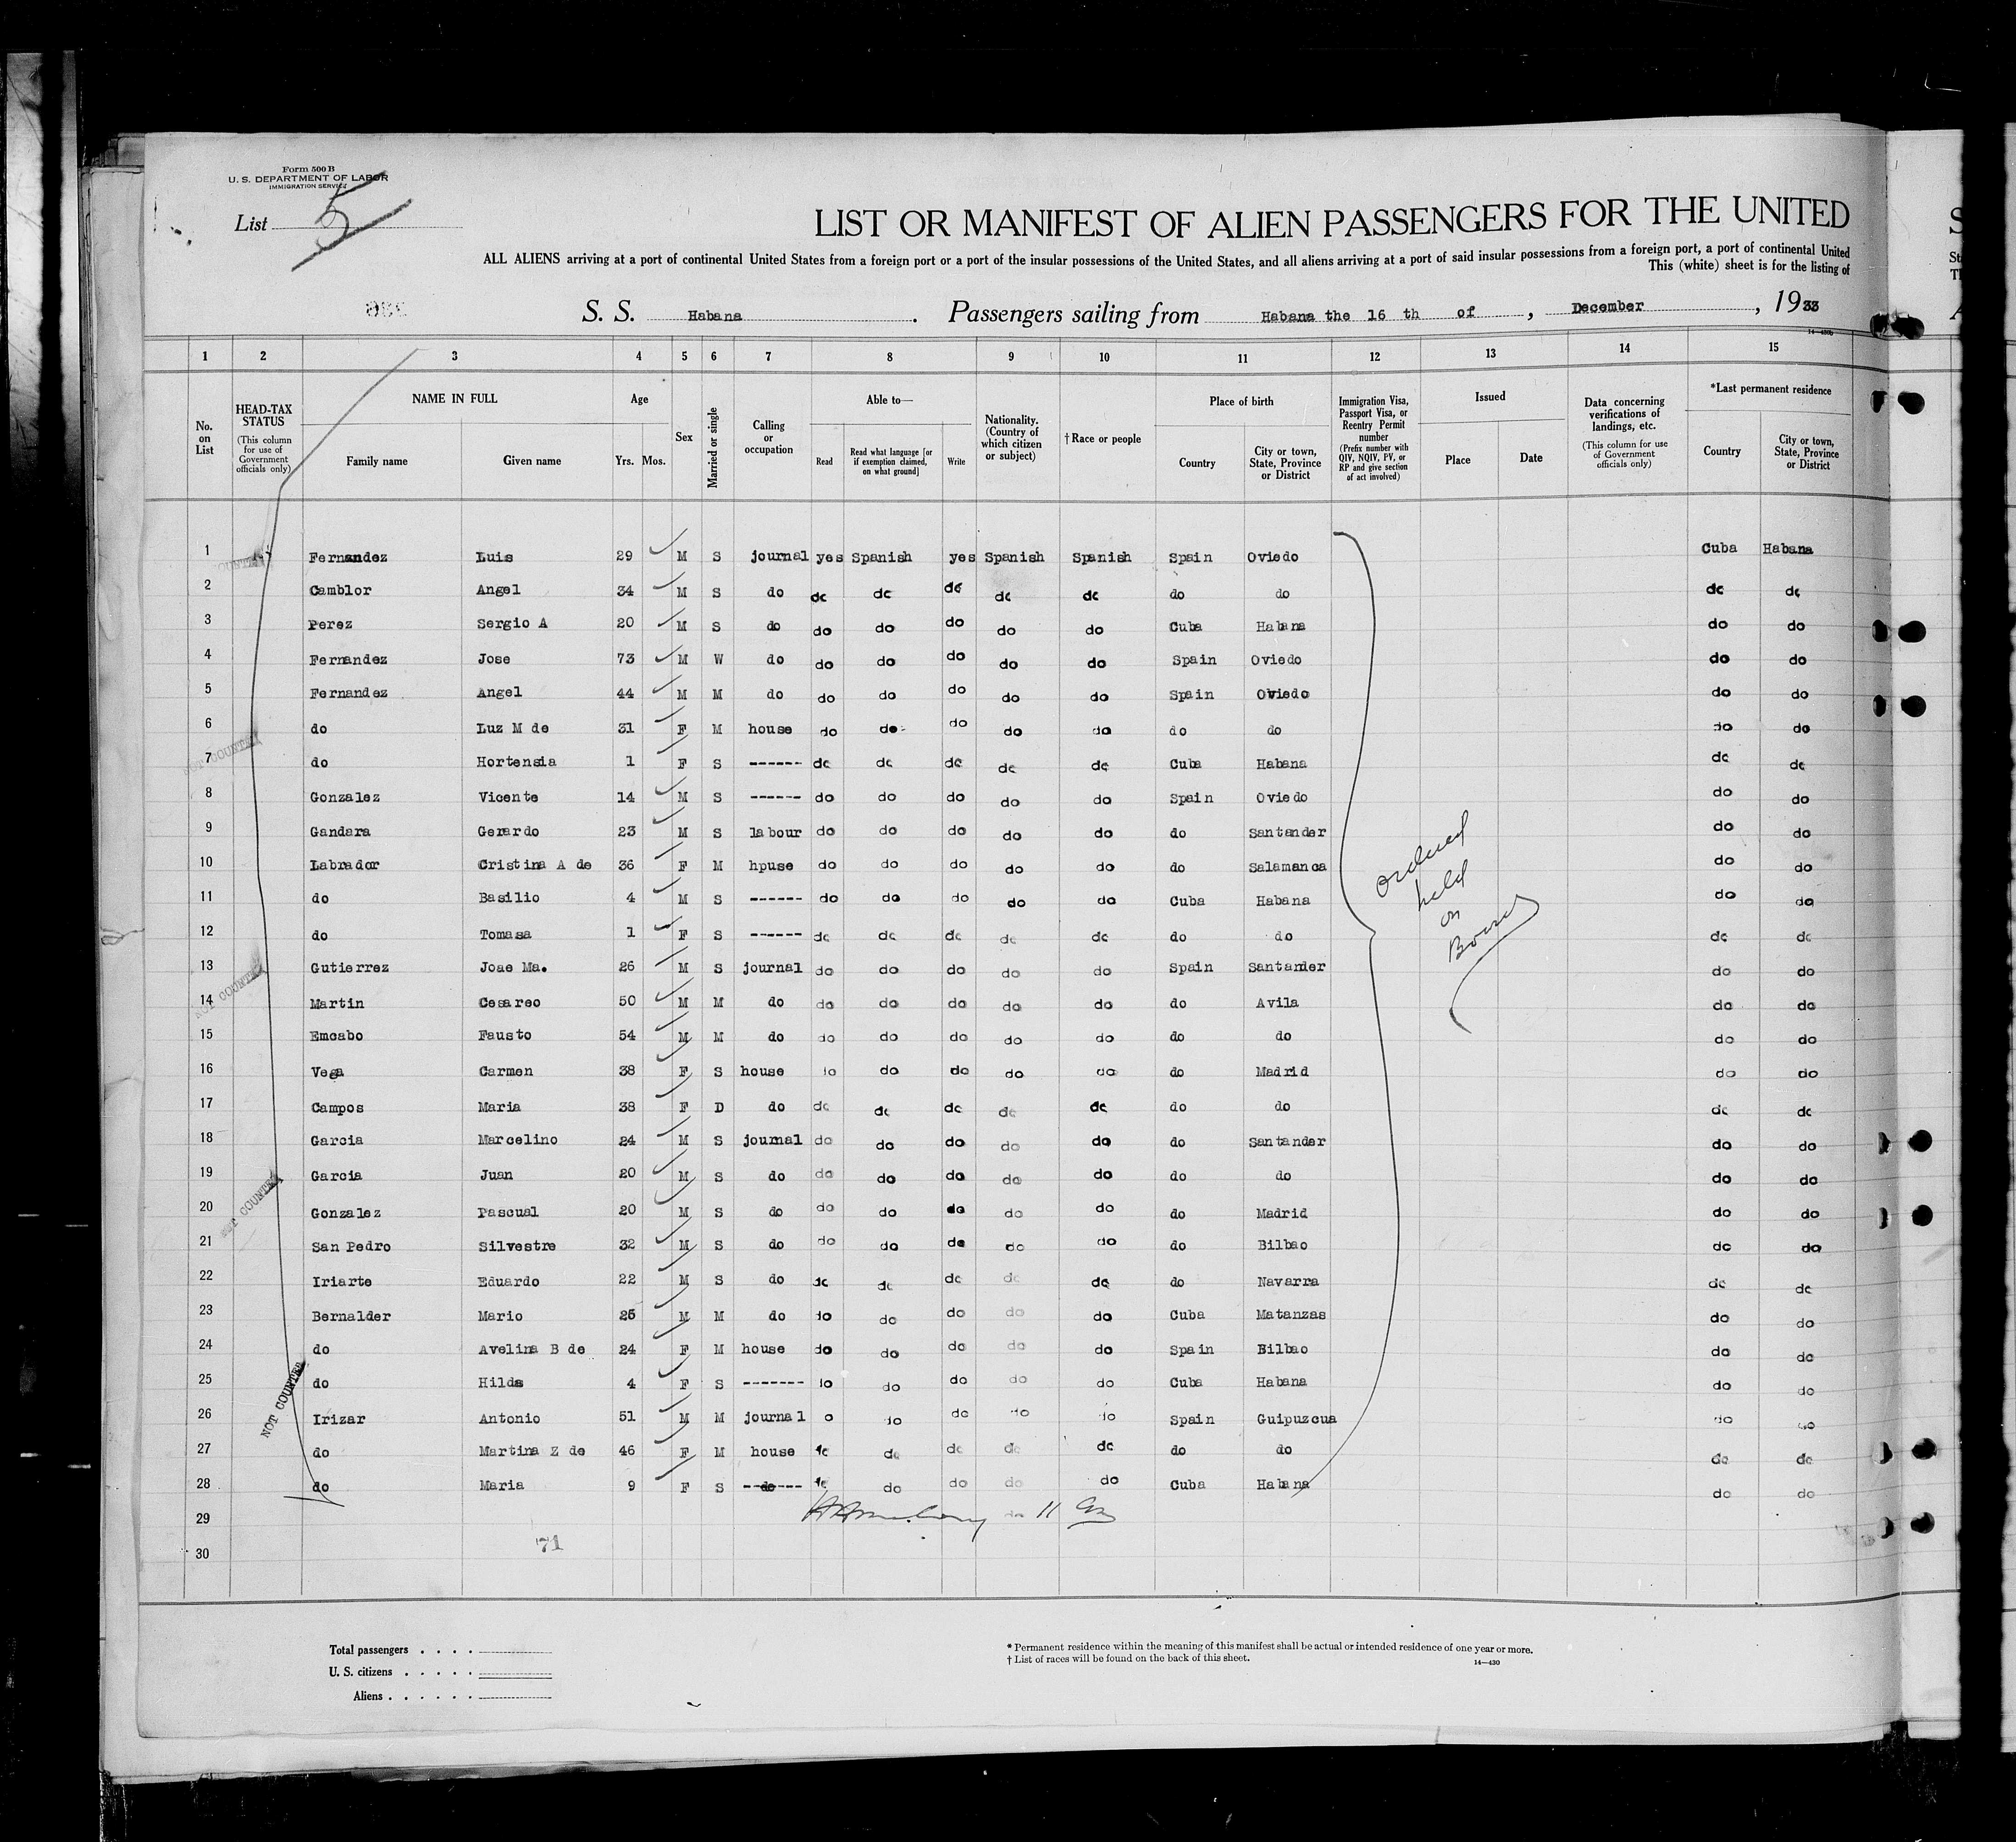 Form 500 B
U. S. DEPARTMENT OF LABOR
IMMIGRATION SERVICE
List 5
LIST OR MANIFEST OF ALIEN PASSENGERS FOR THE UNITED
ALL ALIENS arriving at a port of continental United States from a foreign port or a port of the insular possessions of the United States, and all aliens arriving at a port of said insular possessions from a foreign port, a port of continental United
This (white) sheet is for the listing of
S. S. Habana. Passengers sailing from Habana the 16 th of, December, 1933
14—430b
1 2 3 4 5 6 7 8 9 10 11 12 13 14 15
No. on List
HEAD-TAX STATUS (This column for use of Government officials only)
NAME IN FULL
Family name Given name
Age
Yrs. Mos.
Sex
Married or single
Calling or occupation
Able to—
Read
Read what language [or if exemption claimed, on what ground]
Write
Nationality. (Country of which citizen or subject)
† Race or people
Place of birth
Country
City or town, State, Province or District
Immigration Visa, Passport Visa, or Reentry Permit number (Prefix number with QIV, NQIV, PV, or RP and give section of act involved)
Issued
Place Date
Data concerning verifications of landings, etc. (This column for use of Government officials only)
*Last permanent residence
Country
City or town, State, Province or District
1 Fernandez Luis 29 M S journal yes Spanish yes Spanish Spanish Spain Oviedo Cuba Habana
2 Camblor Angel 34 M S do do do do do do do do do do
3 Perez Sergio A 20 M S do do do do do do Cuba Habana do do
4 Fernandez Jose 73 M W do do do do do do Spain Oviedo do do
5 Fernandez Angel 44 M M do do do do do do Spain Oviedo do do
6 do Luz M de 31 F M house do do do do do do do do do
7 do Hortensia 1 F S ------ do do do do do Cuba Habana do do
8 Gonzalez Vicente 14 M S ------ do do do do do Spain Oviedo do do
9 Gandara Gerardo 23 M S labour do do do do do do Santander do do
10 Labrador Cristina A de 36 F M hpuse do do do do do do Salamanca do do
11 do Basilio 4 M S ------ do do do do do Cuba Habana do do
12 do Tomasa 1 F S ------ do do do do do do do do do
13 Gutierrez Joae Ma. 26 M S journal do do do do do Spain Santander do do
14 Martin Cesareo 50 M M do do do do do do do Avila do do
15 Emcabo Fausto 54 M M do do do do do do do do do do
16 Vega Carmen 38 F S house do do do do do do Madrid do do
17 Campos Maria 38 F D do do do do do do do do do do
18 Garcia Marcelino 24 M S journal do do do do do do Santander do do
19 Garcia Juan 20 M S do do do do do do do do do do
20 Gonzalez Pascual 20 M S do do do do do do do Madrid do do
21 San Pedro Silvestre 32 M S do do do do do do do Bilbao do do
22 Iriarte Eduardo 22 M S do do do do do do do Navarra do do
23 Bernalder Mario 25 M M do do do do do do Cuba Matanzas do do
24 do Avelina B de 24 F M house do do do do do Spain Bilbao do do
25 do Hilda 4 F S ------- do do do do do Cuba Habana do do
26 Irizar Antonio 51 M M journal do do do do do Spain Guipuzcua do do
27 do Martina Z de 46 F M house do do do do do do do do do
28 do Maria 9 F S --do--- do do do do do Cuba Habana do do
29 do 11
30
71
ordered
held
on
Board
NOT COUNTED
NOT COUNTED
NOT COUNTED
NOT COUNTED
Total passengers
U. S. citizens
Aliens
* Permanent residence within the meaning of this manifest shall be actual or intended residence of one year or more.
† List of races will be found on the back of this sheet.
14—430